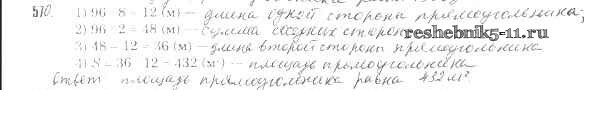 510. 1) 96 : 8 = 12 (м) – длина одной стороны прямоугольника;
2) 96 : 2 = 48 (м) – сумма соседних сторон
reshebnik5-11.ru
3) 48 – 12 = 36 (м) – длина второй стороны прямоугольника
4) S = 36 · 12 = 432 (м²) – площадь прямоугольника
Ответ площадь прямоугольника равна 432 м².